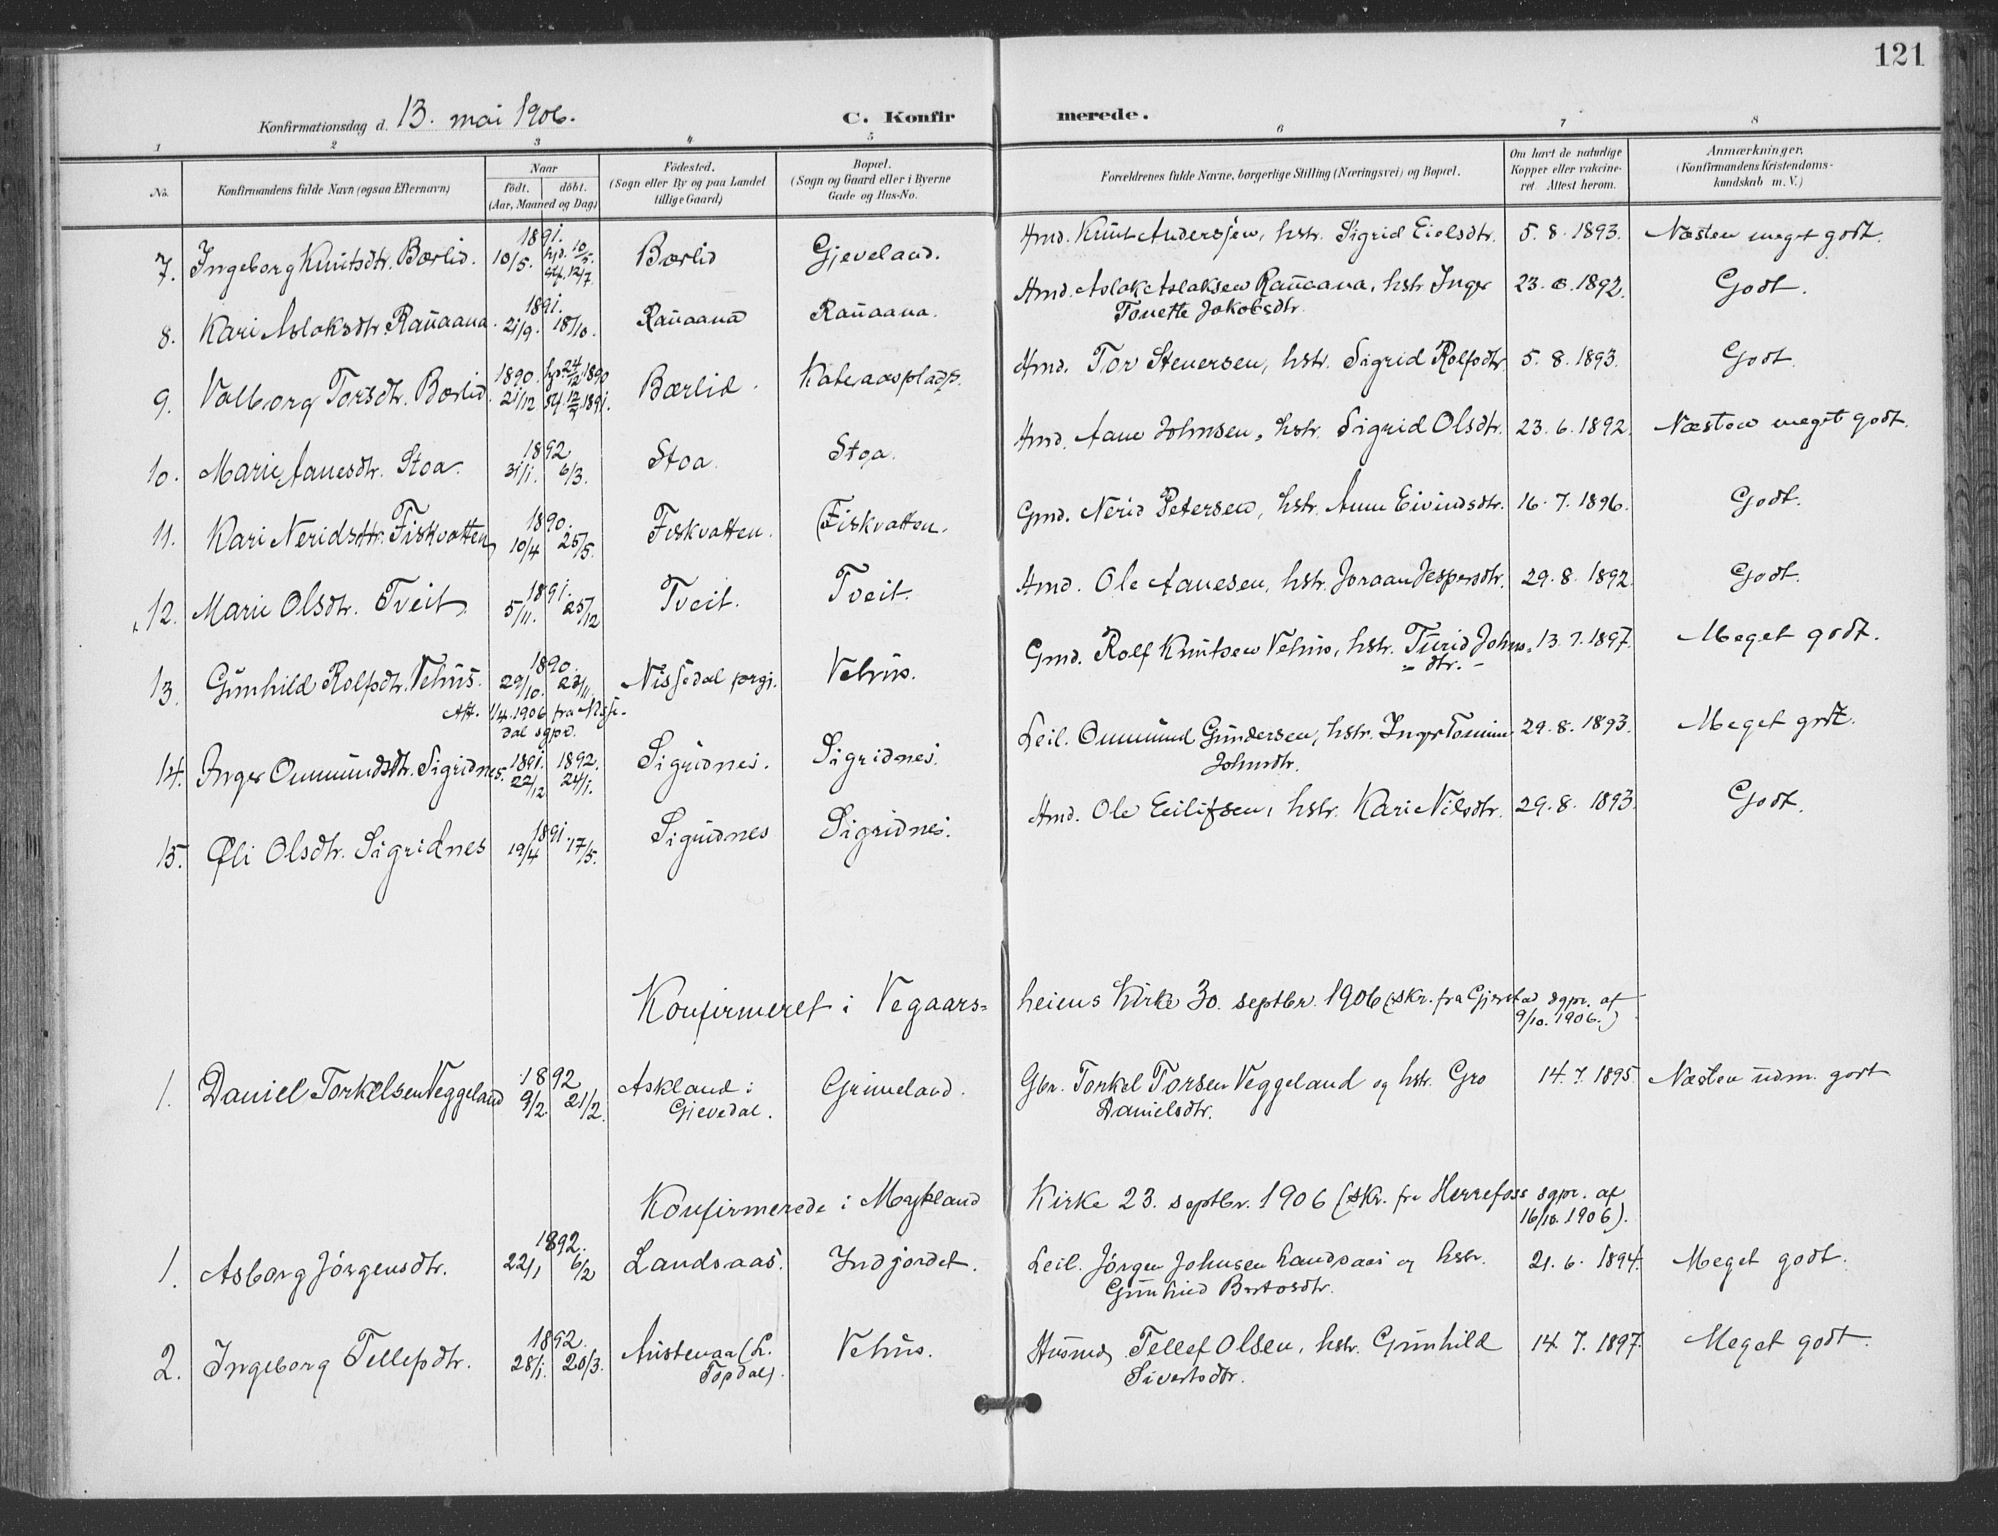 121
Konfirmationsdag d. 13. mai 1906. C. Konfirmerede.
1 2 3 4 5 6 7 8
No. Konfirmandens fulde Navn (ogsaa Efternavn) Naar født. døbt. (Aar, Maaned og Dag) Fødested. (Sogn eller By og paa Landet tillige Gaard) Bopæl. (Sogn og Gaard eller i Byerne Gade og Hus-No. Forældrenes fulde Navne, borgerlige Stilling (Næringsvei) og Bopæl. Om havt de naturlige Kopper eller vakcineret. Attest herom. Anmærkninger. (Konfirmandens Kristendomskundskab m. V.)
7. Ingeborg Knutsdtr. Bærlid. 1891. 10/5. hjd. 10/5. stf. 12/7 Bærlid Gjeveland. Hmd. Knut Anderssen, hstr. Sigrid Eielsdtr. 5. 8. 1893. Næsten meget godt.
8. Kari Aslaksdtr. Rauaana. 1891. 21/9. 18/10. Rauaana Rauaana. Hmd. Aslak Aslaksen Rauaana, hstr. Inger Tonette Jakobsdtr. 23. 8. 1892. Godt.
9. Valborg Torsdtr. Bærlid. 1890. 21/12 hjd. 24/12 1890 stf. 12/7 1891. Bærlid. Kateraasplads. Hmd. Tor Stenersen, hstr. Sigrid Rolfsdtr 5. 8. 1893. Godt.
10. Marie Aanesdtr. Stoa. 1892 31/1. 6/3. Stoa. Stoa. Hmd. Aane Johnsen, hstr. Sigrid Olsdtr. 23. 6. 1892. Næsten meget godt.
11. Kari Neridsdtr. Fiskvatten 1890. 10/4 25/5. Fiskvatten. Fiskvatten. Gmd. Nerid Petersen, hstr. Anne Eivindsdtr. 16. 7. 1896. Godt.
12. Marie Olsdtr. Tveit 1891. 5/11. 25/12 Tveit. Tveit. Hmd. Ole Aanesen, hstr. Joraan Jespersdtr. 29. 8. 1892. Godt.
13. Gunhild Rolfsdtr. Vehus. 1890. 29/10. 23/11. Nissedal prgj. Vehus. Gmd. Rolf Knutsen Vehus, hstr. Turid Johns- 13. 7. 1897. Meget godt.
dtr.
Att. 1/4. 1906 fra Nisse-
dal sgpr.
14. Inger Ommundsdtr. Sigridnes. 1891. 22/12 1892. 24/1. Sigridnes. Sigridnes. Leil. Ommund Gundersen, hstr. Inger Tomine Johnsdtr. 29. 8. 1893. Meget godt.
15. Øli Olsdtr. Sigridnes 1891. 19/4 17/5. Sigridnes Sigridnes. Hmd. Ole Eilifsen, hstr. Kari Nilsdtr. 29. 8. 1893 Godt.
Konfirmeret i Vegaars-heiens Kirke 30. septbr. 1906 (skr. fra Gjerstad sgpr. af 9/10. 1906.)
1. Daniel Torkelsen Veggeland 1892 9/2 21/2. Askland i Gjevedal. Grimeland. Gbr. Torkel Torsen Veggeland og hstr. Gro Danielsdtr. 14. 7. 1895 Næsten udm. godt
Konfirmerede i Mykland Kirke 23. septbr. 1906 (skr. fra Herrefoss sgpr. af 16/10. 1906).
1. Asborg Jørgensdtr. 1892. 22/1 6/2 Landsaas. Indjordet. Leil. Jørgen Johnsen Landsaas og hstr. Gunhild Bertosdtr. 21. 6. 1894. Meget godt.
2. Ingeborg Tellefsdtr. 1892. 28/1. 20/3. Austenaa (L. Topdal). Vehus. Husmd Tellef Olsen, hstr. Gunhild Sivertsdtr. 14. 7. 1897. Meget godt.